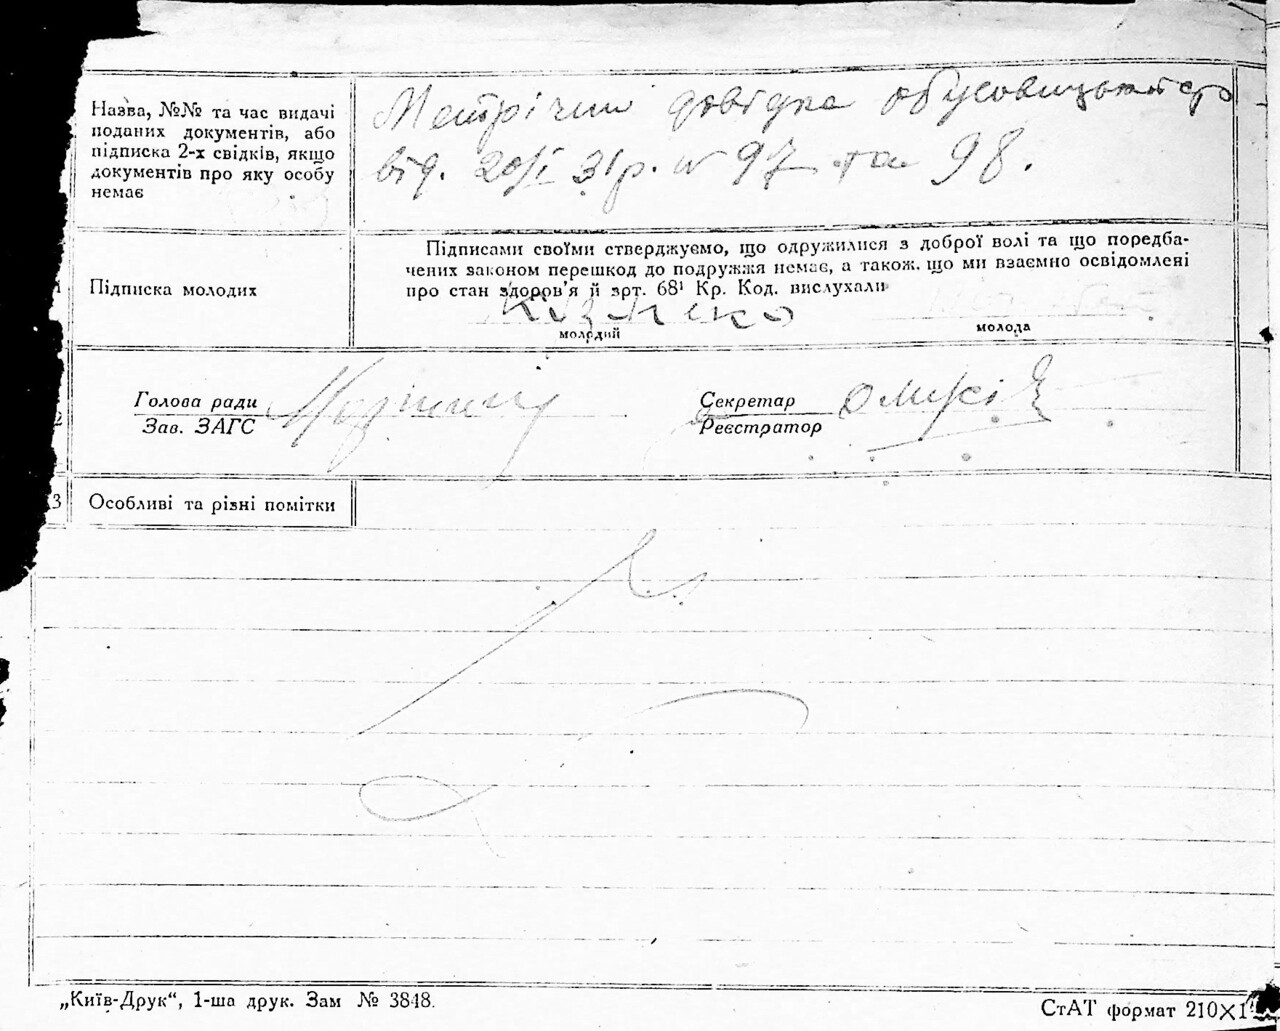 Назва, №№ та час видачі
поданих документів, або
підписка 2-х свідків, якщо
документів про яку особу
немає
Метрічни довідка
від. 20/I 31р. № 97 та 98.
Підписка молодих
Підписами своїми стверджуємо, що одружилися з доброї волі та що поредба-
чених законом перешкод до подружжя немає, а також. що ми взаємно освідомлені
про стан здоров'я й арт. 68¹ Кр. Код. вислухали
молодий
молода
Голова ради
Зав. ЗАГС
Секретар
Реєстратор
3 Особливі та різні помітки
„Київ-Друк“, 1-ша друк. Зам № 3848.
СтАТ формат 210×1